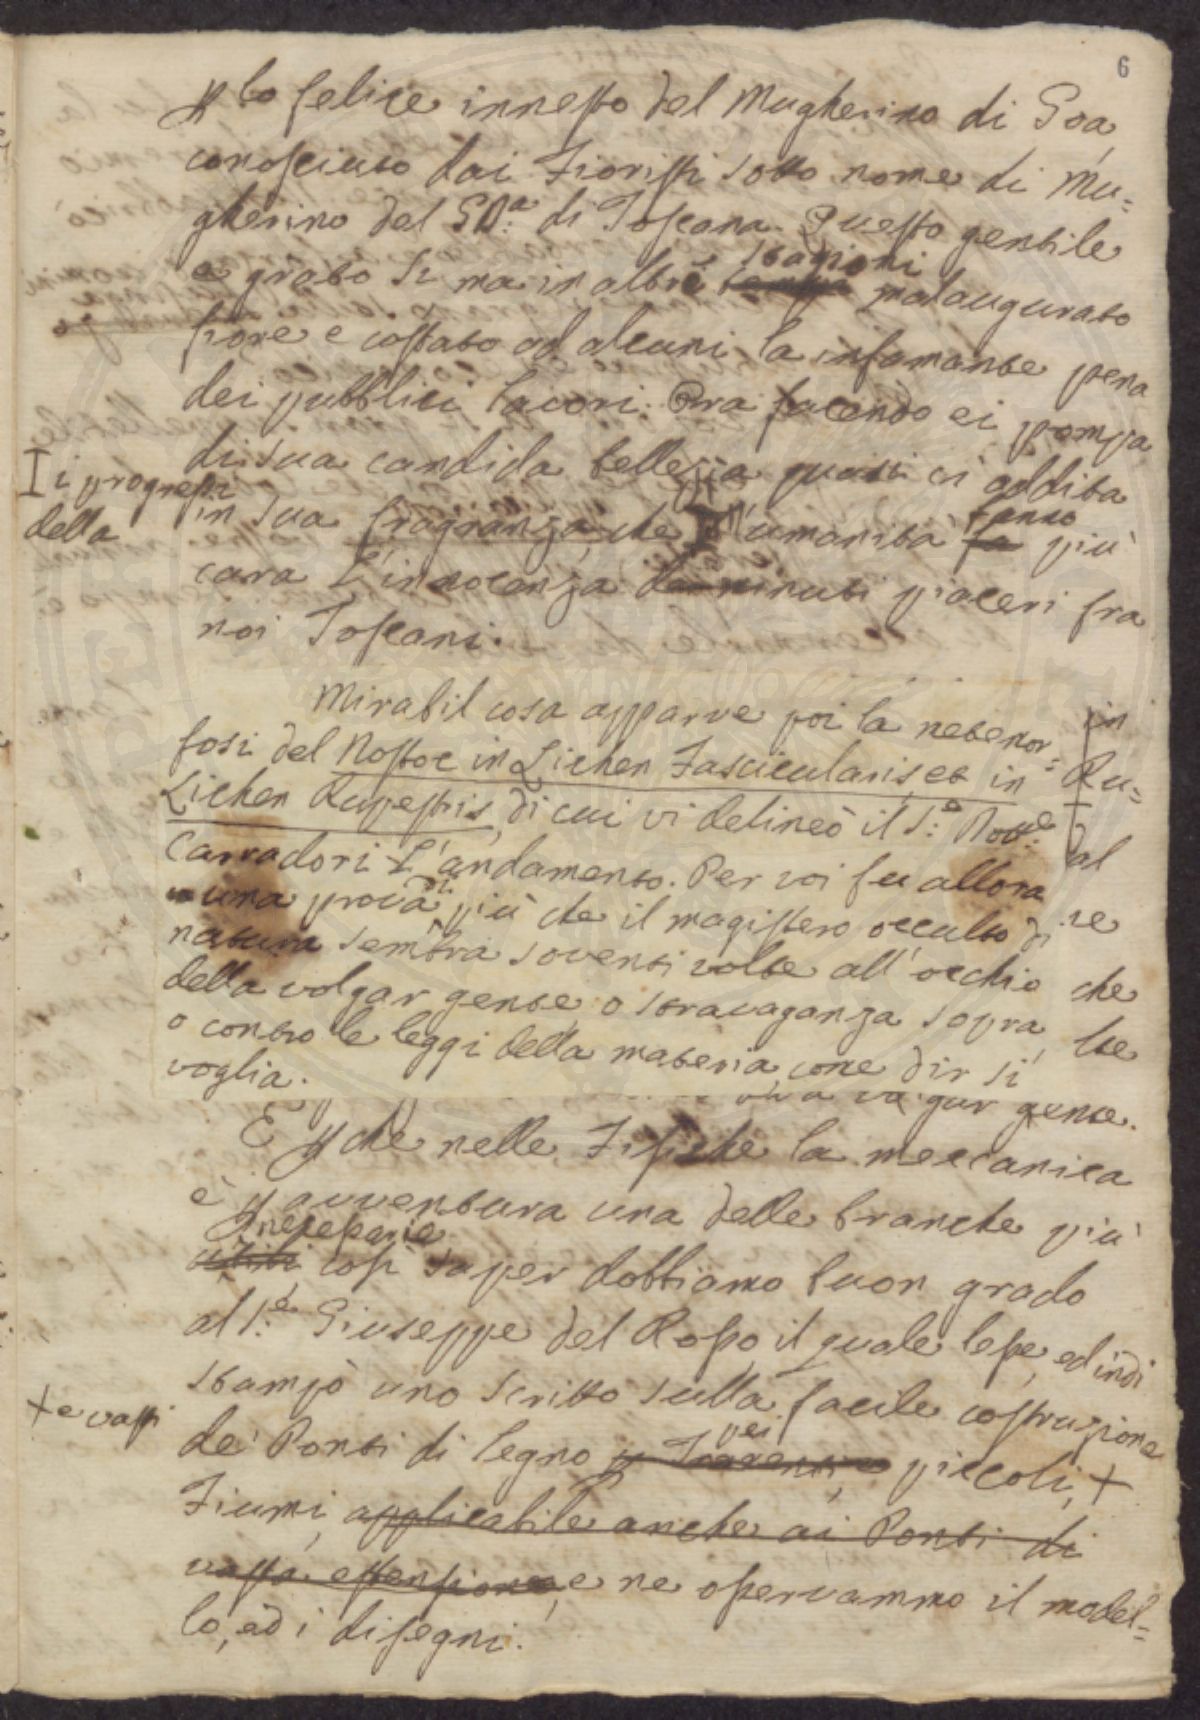 6
p lo felice innesto del Mugherino di Goa,
conosciuto dai Fioristi sotto nome di Mu=
gherino del GD.a di Toscana. Questo gentile
stagioni
e grato sì ma in altre tempi malaugurato
fiore è costato ad alcuni la infamante pena
dei pubblici lavori. Ora facendo ei pompa
di sua candida bellezza quasi ci addita
I i progressi
della
in sua fragranza, che l'umanità fa più
fanno
cara l'innocenza de minuti piaceri fra
noi Toscani.
Mirabil cosa apparve poi la metemor=
fosi del Nostoc in Lichen Fascicularis, et in
Lichen Rupestris, di cui vi delineò il S.e Dott.e
Carradori l'andamento. Per voi fu allora
una prova di più che il magistero occulto di
natura sembra soventi volte all'occhio
della volgar gente o stravaganza sopra,
o contro le leggi della materia, come dir si
voglia.
in
Ru=
al
re
che
he
volgar gente.
E p che nelle Fisiche la meccanica
è p avventura una delle branche più
necessarie
utili così saper dobbiamo buon grado
al S.e Giuseppe del Rosso il quale lesse, ed indi
stampò uno scritto sulla facile costruzione
+ e vasti
de' Ponti di legno p Torrenti, e piccoli, +
pei
Fiumi, applicabile anche ai Ponti di
vasta estensione, e ne osservammo il model=
lo, ed i disegni.